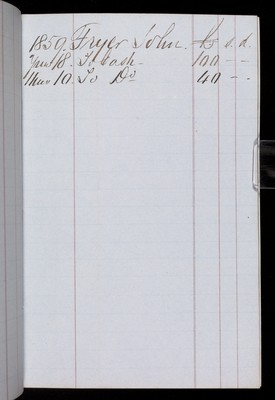 1859. Fryer John. £ s. d.
18. To Cash - 100 - -
10. To Do 40 - -